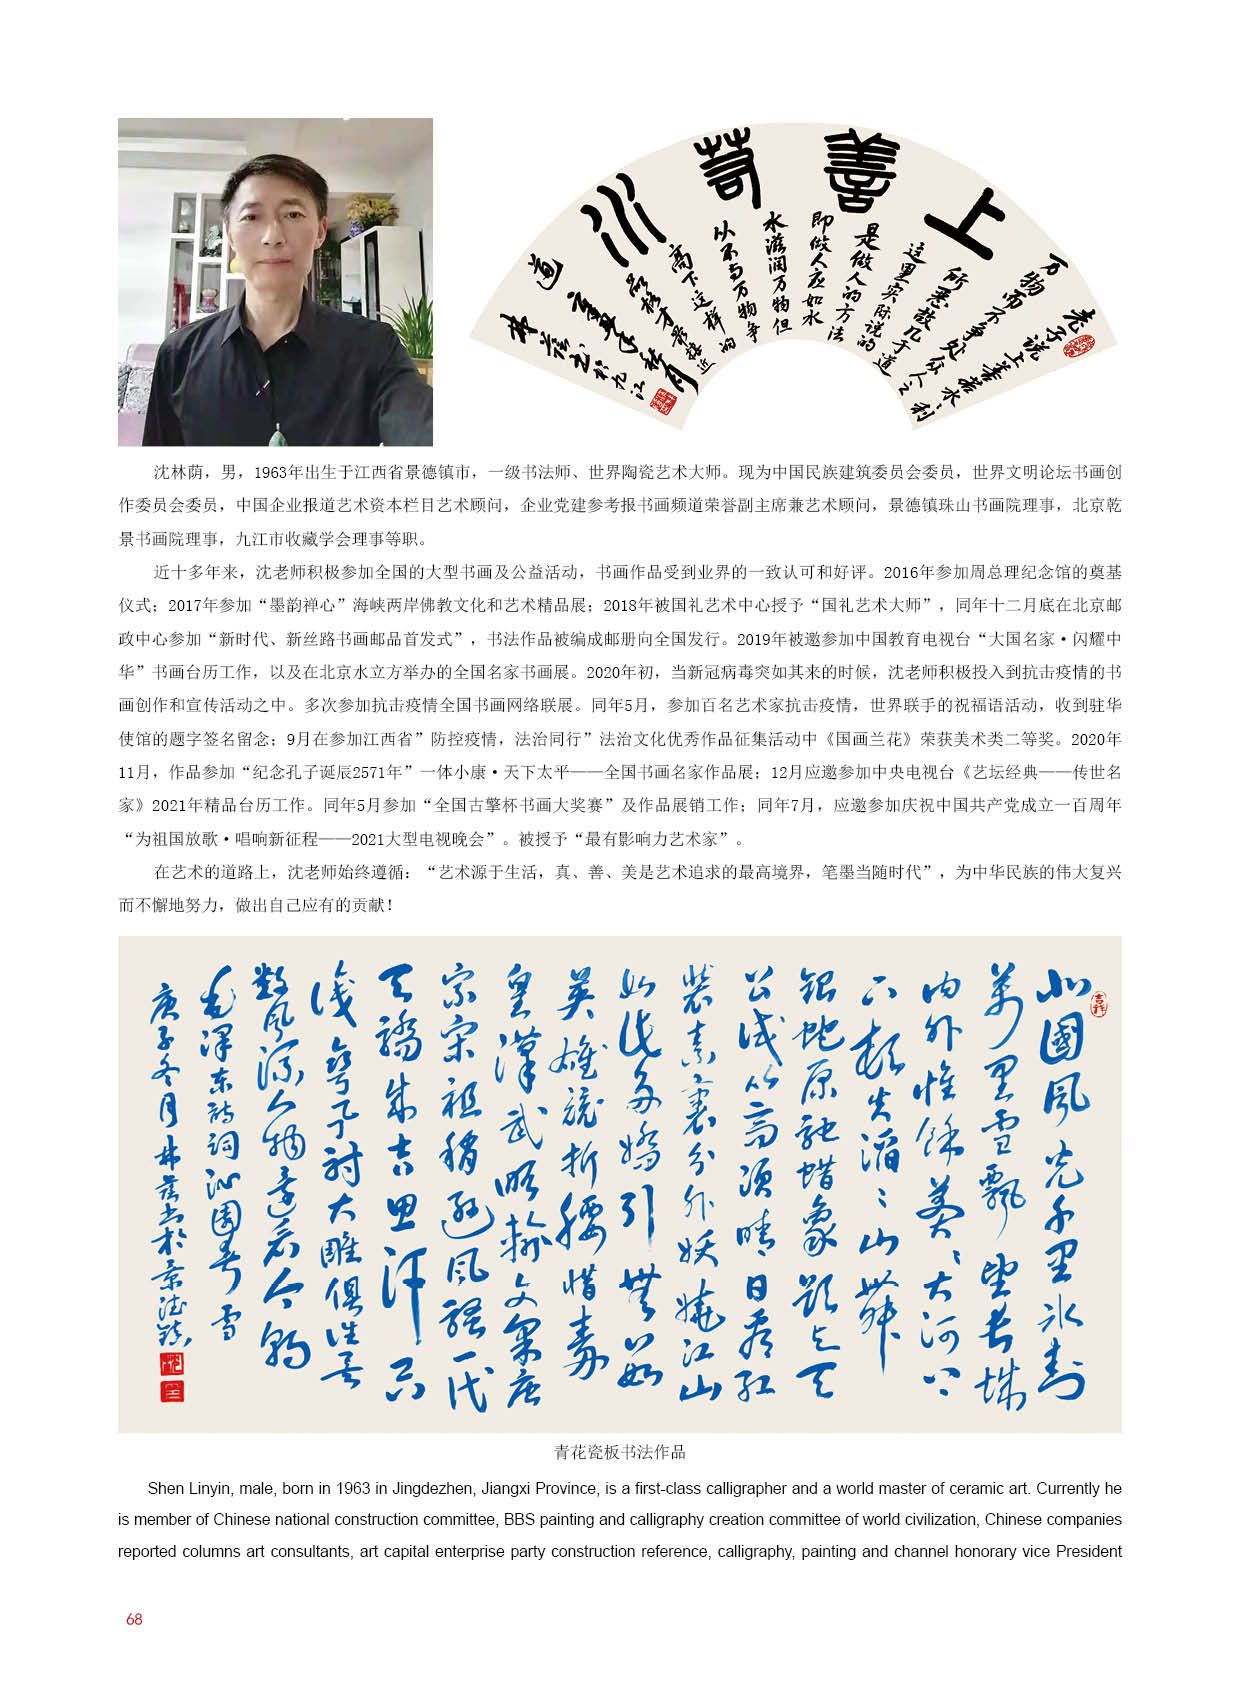 上善若水
老子说上善若水利
万物而不争处众人之
所恶故几于道
这里实际说的
是做人的方法
即做人应如水
水滋润万物但
从不与万物争
高下这样的
品格才最接近
道
林荫书于九江
沈林荫，男，1963年出生于江西省景德镇市，一级书法师、世界陶瓷艺术大师。现为中国民族建筑委员会委员，世界文明论坛书画创
作委员会委员，中国企业报道艺术资本栏目艺术顾问，企业党建参考报书画频道荣誉副主席兼艺术顾问，景德镇珠山书画院理事，北京乾
景书画院理事，九江市收藏学会理事等职。
近十多年来，沈老师积极参加全国的大型书画及公益活动，书画作品受到业界的一致认可和好评。2016年参加周总理纪念馆的奠基
仪式；2017年参加“墨韵禅心”海峡两岸佛教文化和艺术精品展；2018年被国礼艺术中心授予“国礼艺术大师”，同年十二月底在北京邮
政中心参加“新时代、新丝路书画邮品首发式”，书法作品被编成邮册向全国发行。2019年被邀参加中国教育电视台“大国名家·闪耀中
华”书画台历工作，以及在北京水立方举办的全国名家书画展。2020年初，当新冠病毒突如其来的时候，沈老师积极投入到抗击疫情的书
画创作和宣传活动之中。多次参加抗击疫情全国书画网络联展。同年5月，参加百名艺术家抗击疫情，世界联手的祝福语活动，收到驻华
使馆的题字签名留念；9月在参加江西省”防控疫情，法治同行”法治文化优秀作品征集活动中《国画兰花》荣获美术类二等奖。2020年
11月，作品参加“纪念孔子诞辰2571年”一体小康·天下太平——全国书画名家作品展；12月应邀参加中央电视台《艺坛经典——传世名
家》2021年精品台历工作。同年5月参加“全国古擎杯书画大奖赛”及作品展销工作；同年7月，应邀参加庆祝中国共产党成立一百周年
“为祖国放歌·唱响新征程——2021大型电视晚会”。被授予“最有影响力艺术家”。
在艺术的道路上，沈老师始终遵循：“艺术源于生活，真、善、美是艺术追求的最高境界，笔墨当随时代”，为中华民族的伟大复兴
而不懈地努力，做出自己应有的贡献！
吉祥
北國風光千里冰封
萬里雪飄望長城
内外惟餘莽莽大河上
下頓失滔滔山舞
銀蛇原馳蜡象欲与天
公試比高須晴日看紅
裝素裹分外妖嬈江山
如此多嬌引無數
英雄競折腰惜秦
皇漢武略輸文采唐
宗宋祖稍遜風騷一代
天驕成吉思汗只
識彎弓射大雕俱往矣
數風流人物還看今朝
毛澤東詩詞沁園春雪
庚子冬月林荫书於景德镇
青花瓷板书法作品
Shen Linyin, male, born in 1963 in Jingdezhen, Jiangxi Province, is a first-class calligrapher and a world master of ceramic art. Currently he
is member of Chinese national construction committee, BBS painting and calligraphy creation committee of world civilization, Chinese companies
reported columns art consultants, art capital enterprise party construction reference, calligraphy, painting and channel honorary vice President
68